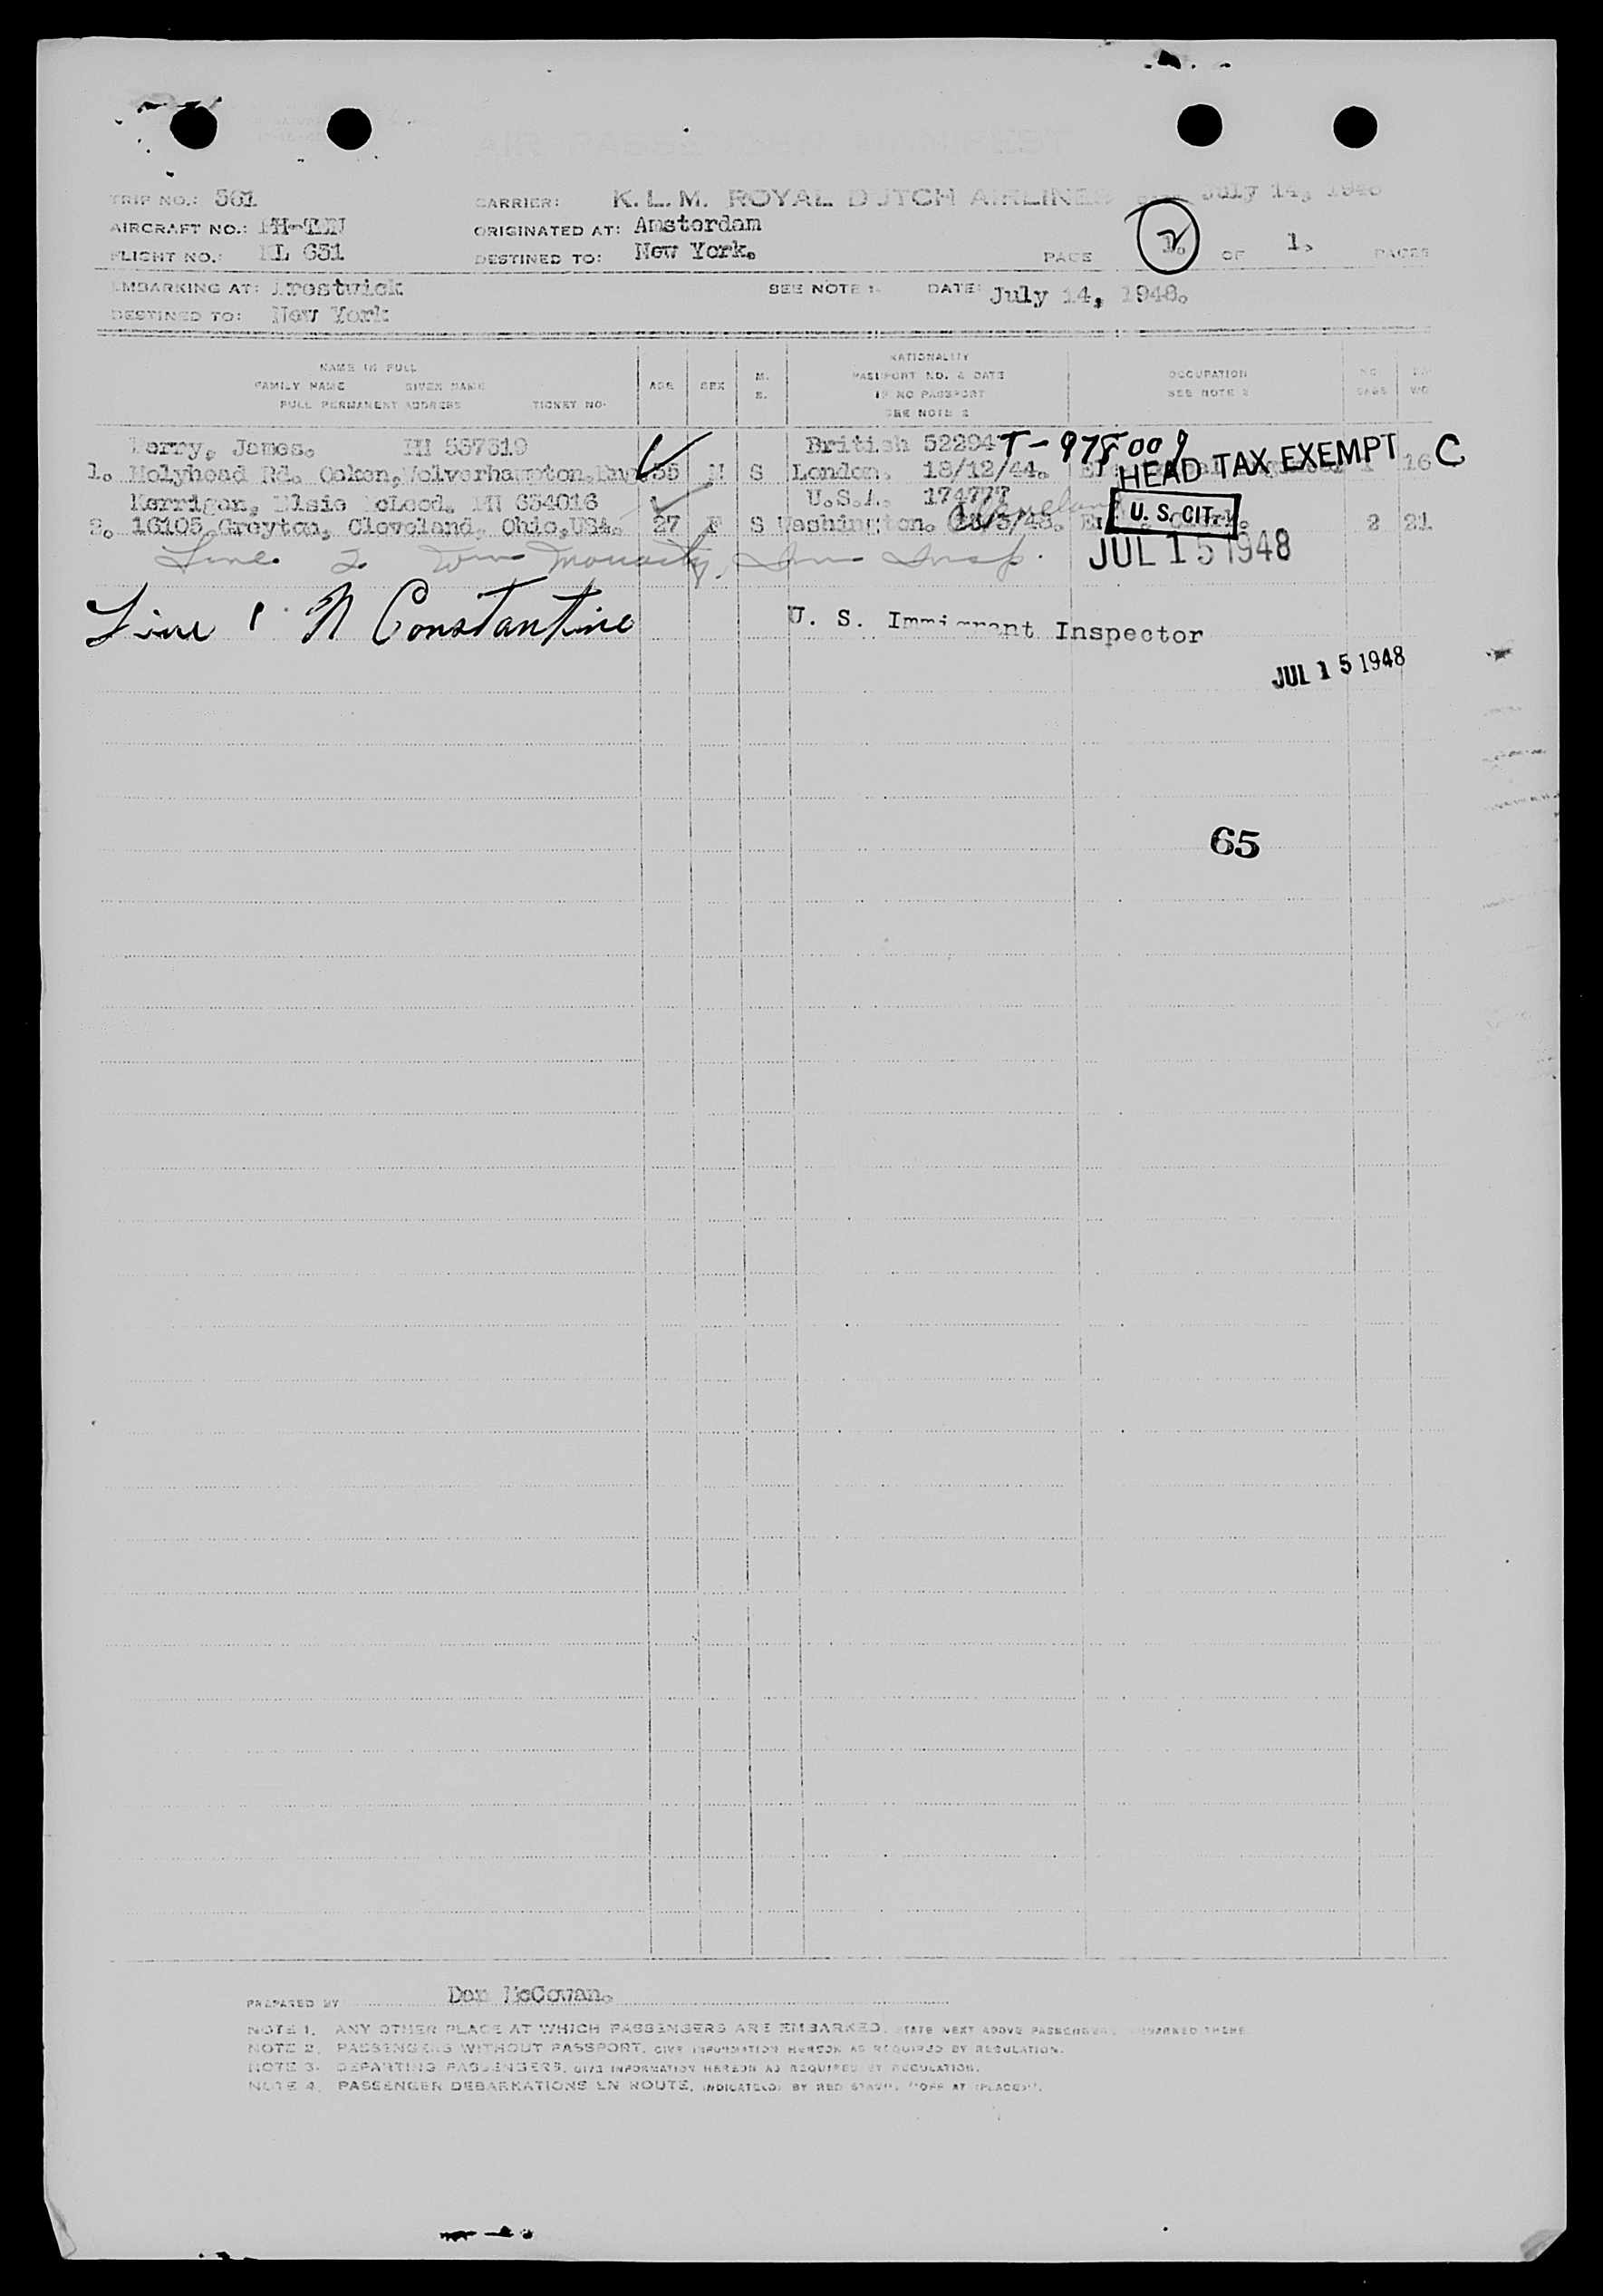 AIR PASSENGER MANIFEST
TRIP NO.: 561 CARRIER: K.L.M. ROYAL DUTCH AIRLINES July 14, 1948
AIRCRAFT NO.: PH-TEN ORIGINATED AT: Amsterdam
FLIGHT NO.: KL 651 DESTINED TO: New York. PAGE 2 OF 1. PAGES
EMBARKING AT: Prestwick SEE NOTE 1. DATE: July 14, 1948.
DESTINED TO: New York
NAME IN FULL
FAMILY NAME GIVEN NAME
FULL PERMANENT ADDRESS TICKET NO.
AGE SEX M. S.
NATIONALITY
PASSPORT NO. & DATE
IF NO PASSPORT
SEE NOTE 2
OCCUPATION
SEE NOTE 3
NO. BAGS
James. 557519 British 52294 T-978009
1. Holyhead Rd. Oaken, Wolverhampton, Eng 55 M S London. 18/12/44. HEAD TAX EXEMPT 1 16 C
Kerrigan, Elsie McLeod. 654016 U.S.A. 174777 Cleveland
2. 16105 Greyton, Cleveland, Ohio, USA. 27 F S Washington. /5/48. U.S. CIT. Clerk. 2 21
Line 2 Wm Moriarty, Imm Insp. JUL 15 1948
Line 1 N Constantine U. S. Immigrant Inspector
JUL 15 1948
65
PREPARED BY Don McCowan.
NOTE 1. ANY OTHER PLACE AT WHICH PASSENGERS ARE EMBARKED, STATE NEXT ABOVE PASSENGERS EMBARKED THERE.
NOTE 2. PASSENGERS WITHOUT PASSPORT, GIVE INFORMATION HEREON AS REQUIRED BY REGULATION.
NOTE 3. DEPARTING PASSENGERS, GIVE INFORMATION HEREON AS REQUIRED BY REGULATION.
NOTE 4. PASSENGER DEBARKATIONS EN ROUTE, INDICATE(D) BY RED STAMP, "OFF AT (PLACE)".